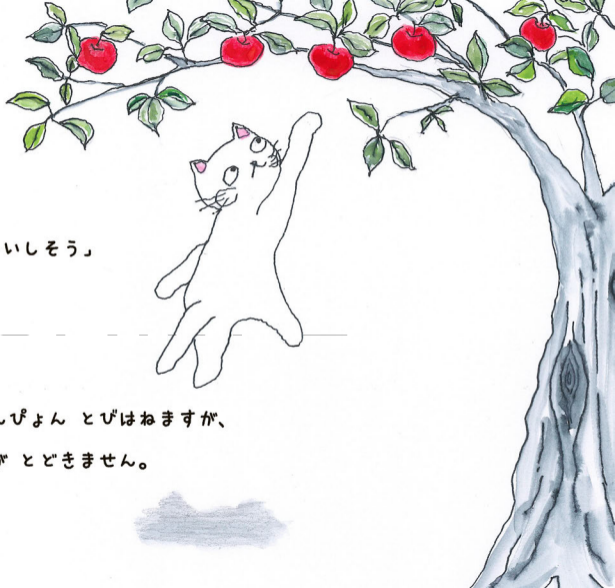 いしそう」
ぴょん とびはねますが、
とどきません。